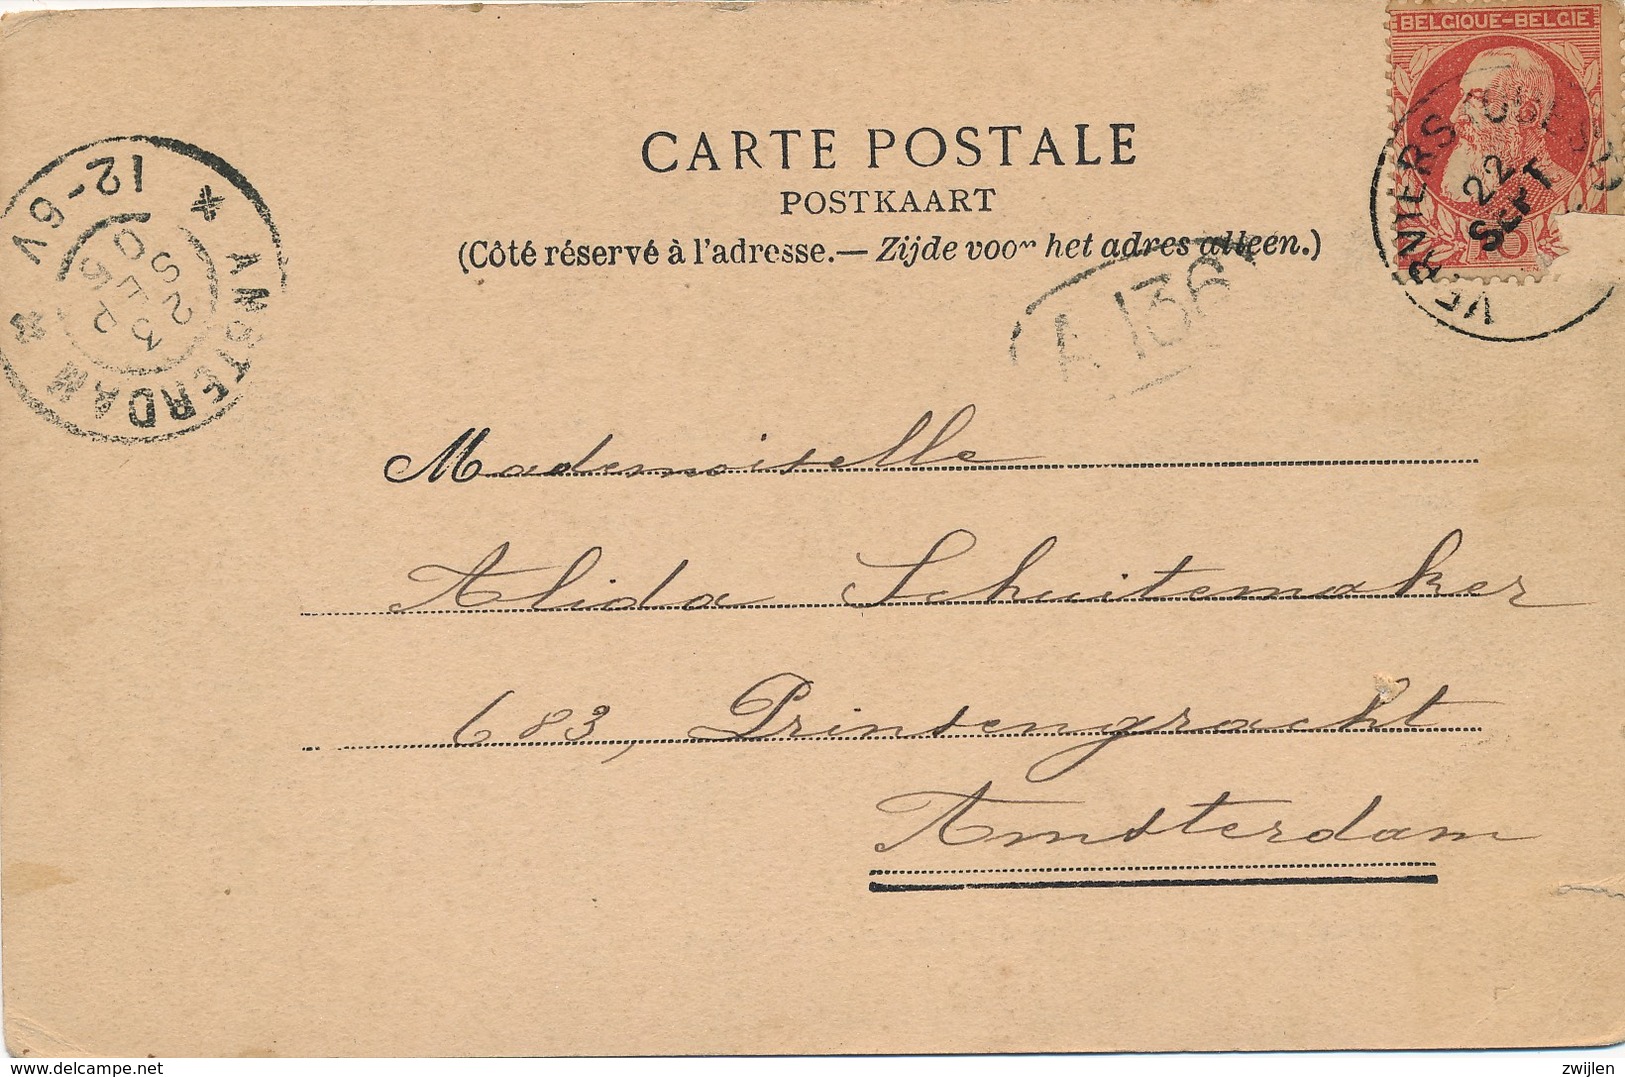 BELGIQUE-BELGIE
10
VERVIERS
22
SEPT
CARTE POSTALE
POSTKAART
(Côté réservé à l'adresse.— Zijde voor het adres alleen.)
AMSTERDAM
12-6V
23
SEP
A 136
Mademoiselle
Alida Schuitemaker
683, Prinsengracht
Amsterdam
delcampe.net
zwijlen